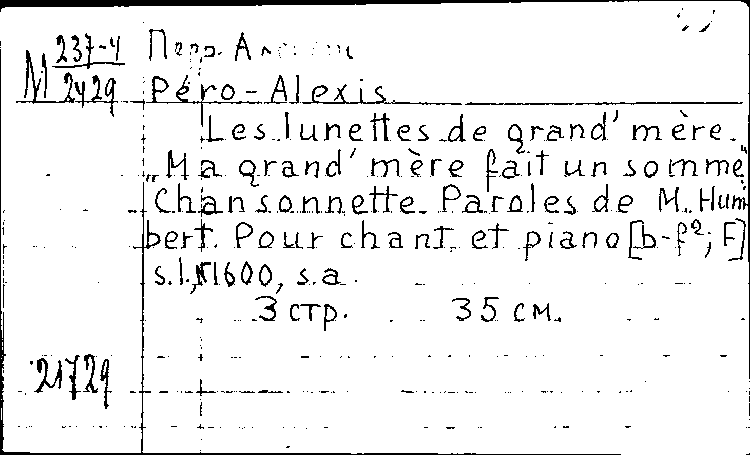 М 237-4
2429
Перо-
Péro-Alexis.
Les lunettes de grand' mère.
"Ma grand' mère fait un somme"
Chansonnette. Paroles de M. Hum
bert. Pour chant et piano [b-f²; F]
s.l., №1600, s.a.
3 стр. 35 см.
21729